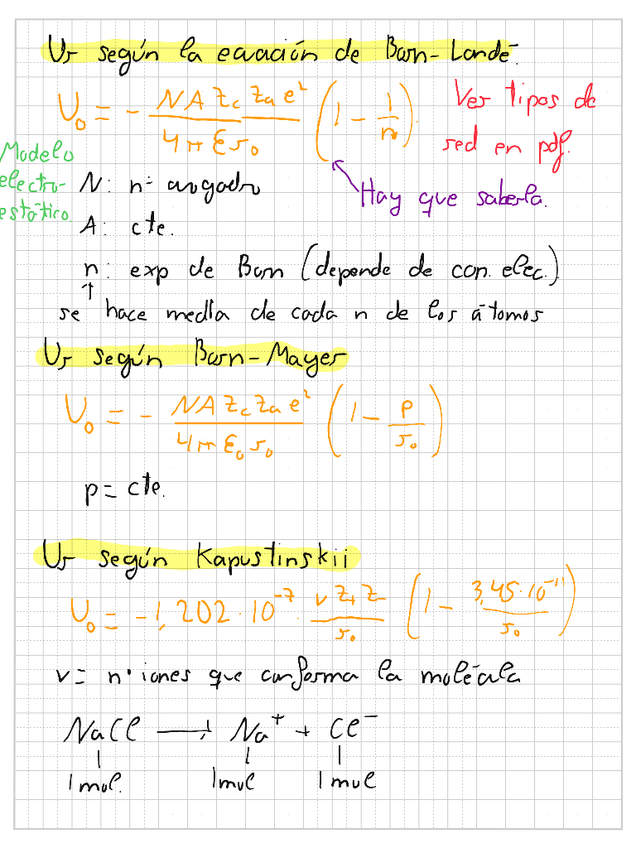 Ur según la ecuación de Born-Landé:
U₀ = - NA Zc Za e² / 4π ε r₀ (1 - 1/n)
Ver tipos de
red en pdf.
Modelo
electro-
estático.
Hay que saberla.
N: nº avogadro
A: cte.
n: exp de Born (depende de con. elec.)
↑
se hace media de cada n de los átomos
Ur según Born-Mayer
U₀ = - NA Zc Za e² / 4π ε₀ r₀ (1 - ρ/r₀)
ρ = cte.
Ur según Kapustinskii
U₀ = -1,202·10⁻⁷ · ν Z+ Z- / r₀ (1 - 3,45·10⁻¹¹ / r₀)
ν = nº iones que conforma la molécula
NaCl → Na⁺ + Cl⁻
1 mol. 1 mol 1 mol